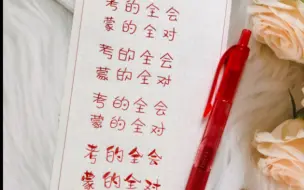 考的全会
蒙的全对
考的全会
蒙的全对
考的全会
蒙的全对
考的全会
蒙的全对